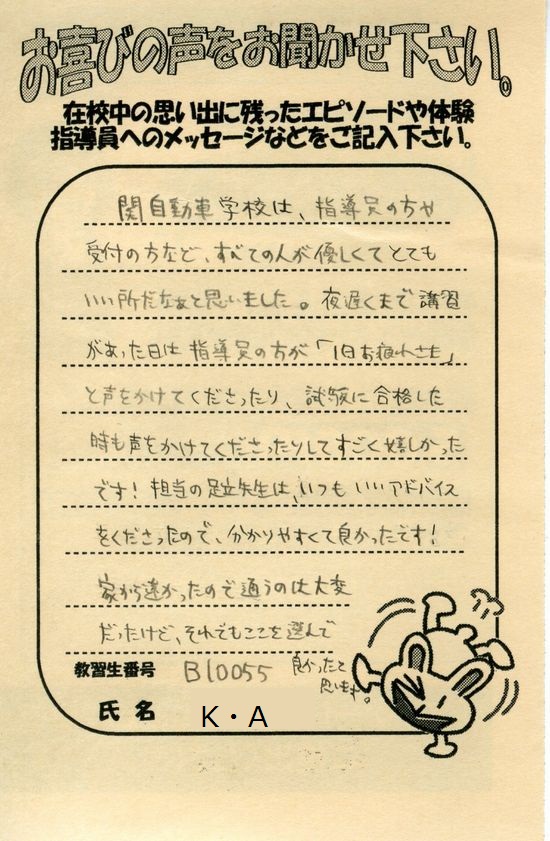 お喜びの声をお聞かせ下さい。
在校中の思い出に残ったエピソードや体験
指導員へのメッセージなどをご記入下さい。
関自動車学校は、指導員の方や
受付の方など、すべての人が優しくてとても
いい所だなぁと思いました。夜遅くまで講習
があった日は指導員の方が「1日お疲れさま」
と声をかけてくださったり、試験に合格した
時も声をかけてくださったりしてすごく嬉しかった
です！担当の足立先生は、いつもいいアドバイス
をくださったので、分かりやすくて良かったです！
家から遠かったので通うのは大変
だったけど、それでもここを選んで
良かったと
思います。
教習生番号 B10055
氏名 K・A